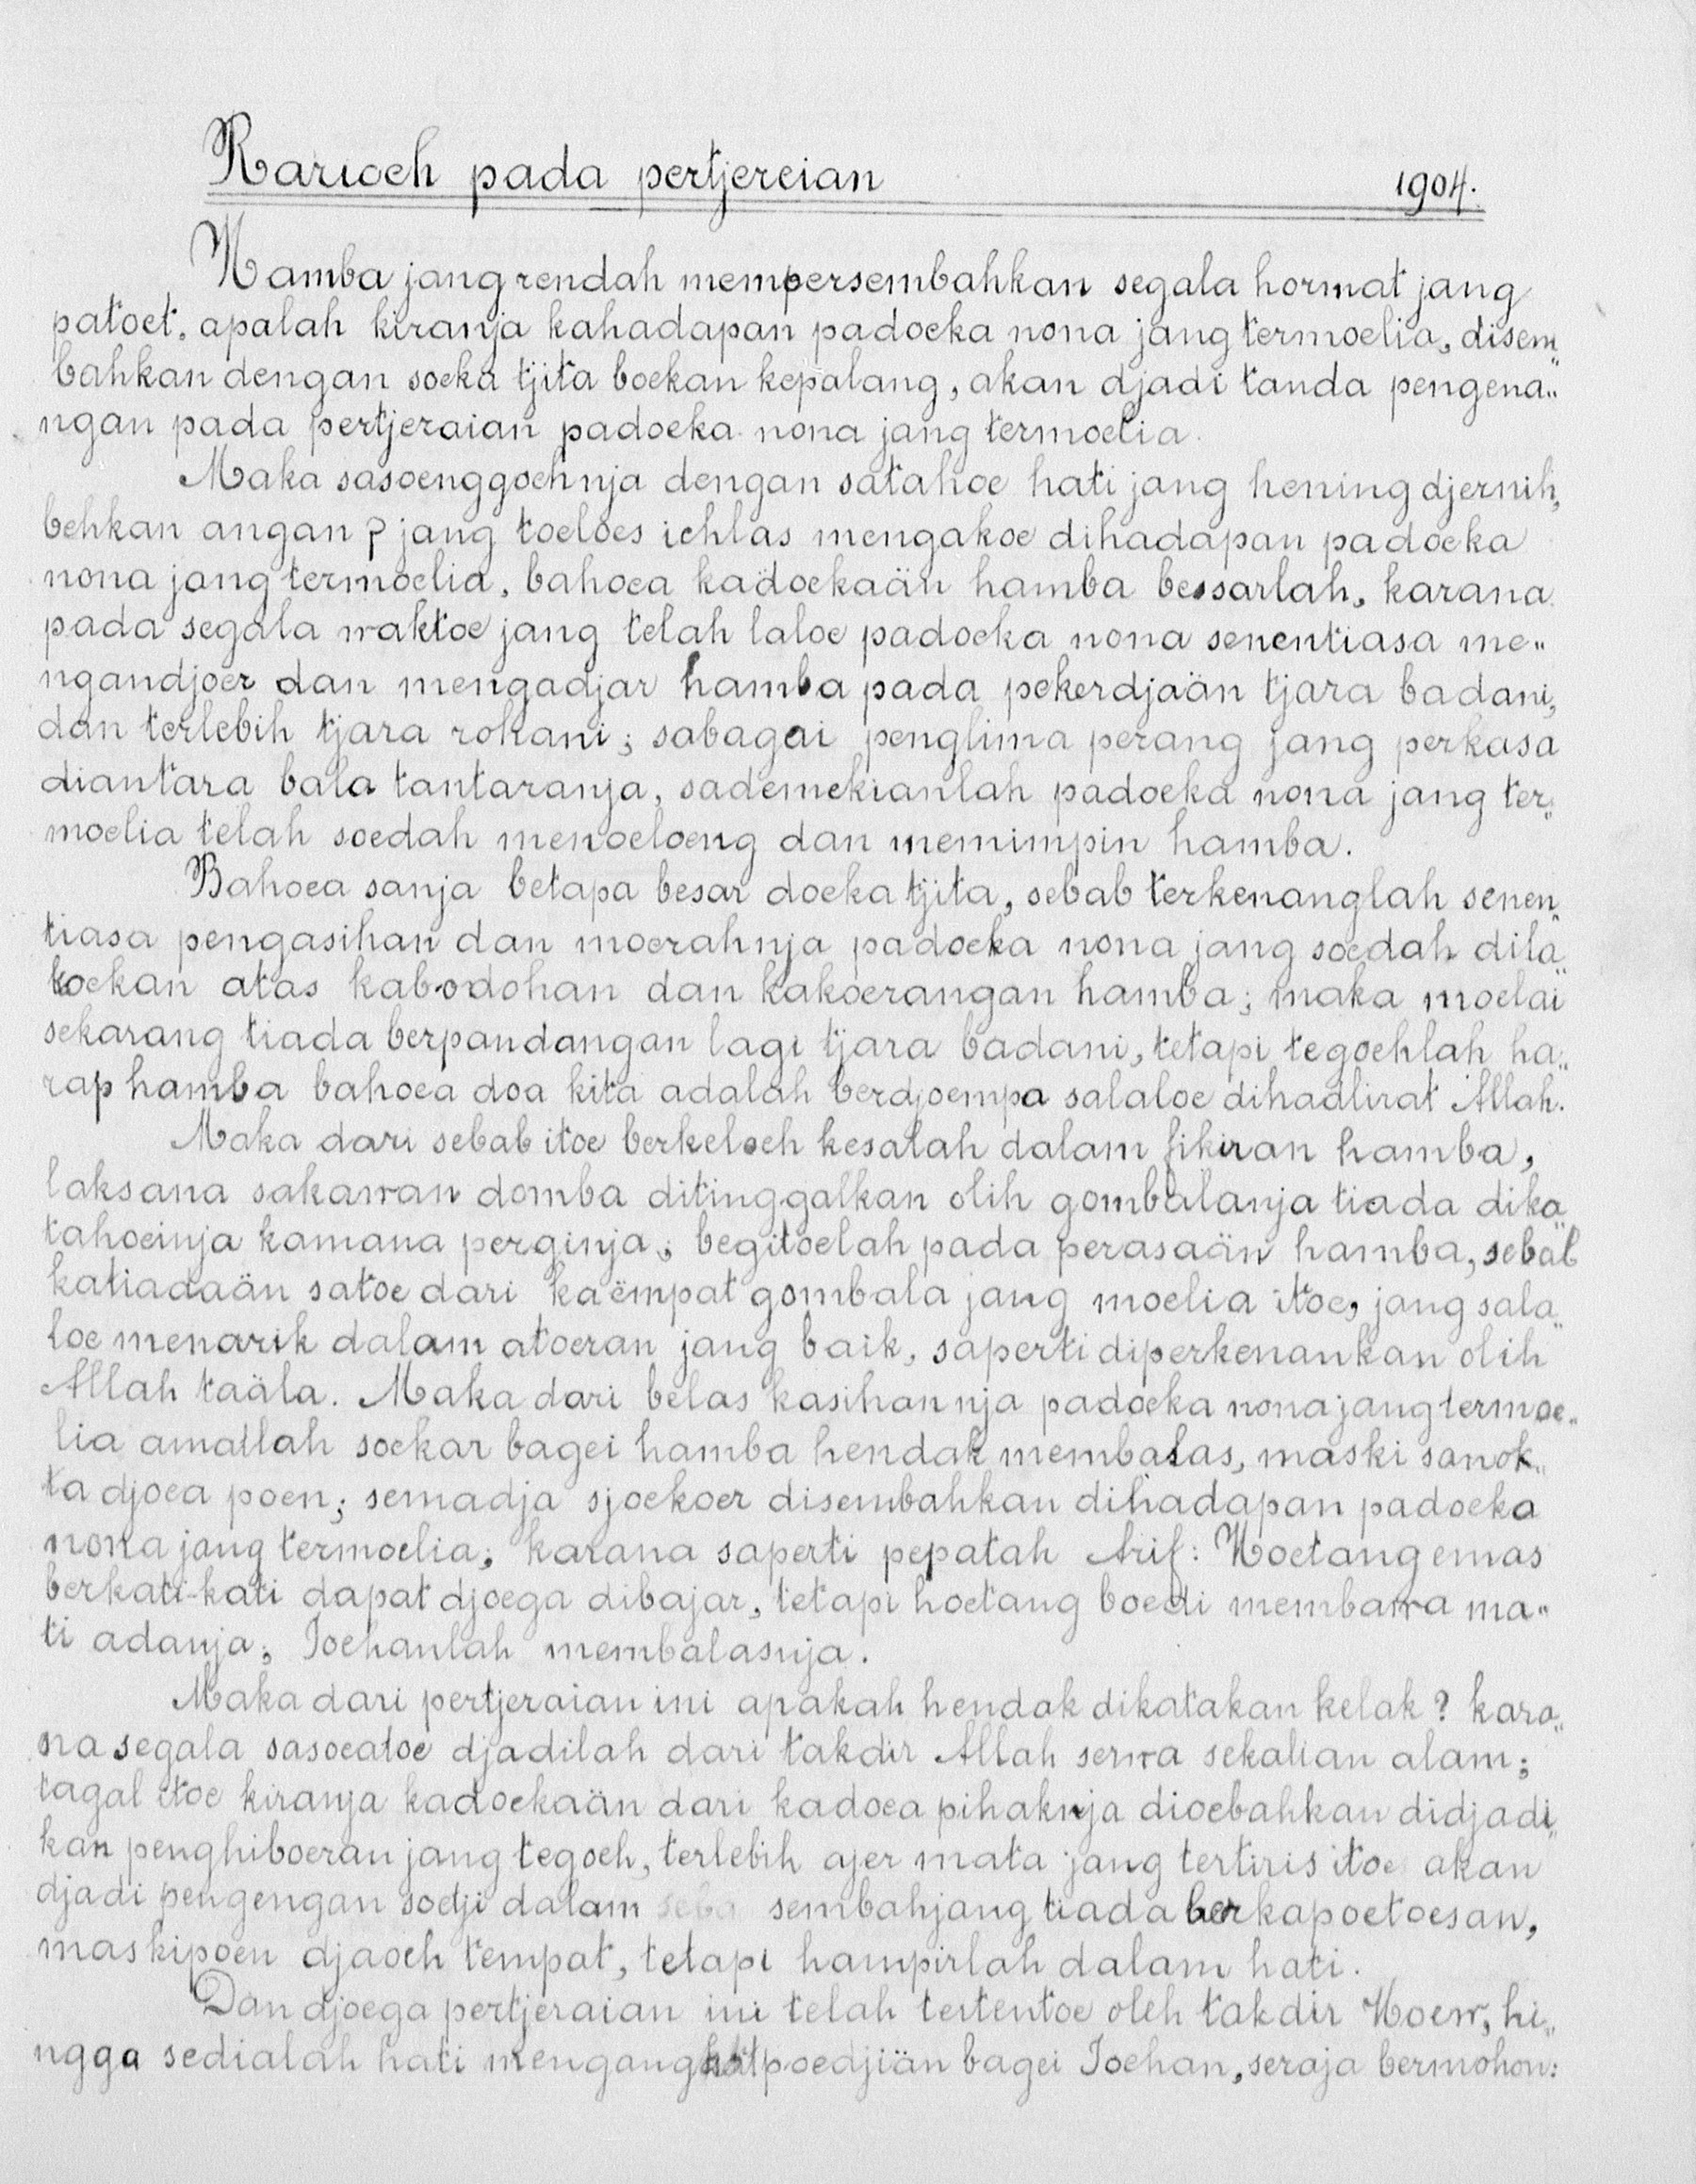 Rarioeh pada pertjereian 1904.
Hamba jang rendah mempersembahkan segala hormat jang
patoet. apalah kiranja kahadapan padoeka nona jang termoelia, disem„
bahkan dengan soeka tjita boekan kepalang, akan djadi tanda pengena„
ngan pada pertjeraian padoeka nona jang termoelia.
Maka sasoenggoehnja dengan satahoe hati jang hening djernih,
behkan angan2 jang toeloes ichlas mengakoe dihadapan padoeka
nona jang termoelia, bahoea kadoekaän hamba bessarlah, karana
pada segala waktoe jang telah laloe padoeka nona senentiasa me„
ngandjoer dan mengadjar hamba pada pekerdjaän tjara badani,
dan terlebih tjara rohani; sabagai penglima perang jang perkasa
diantara bala tantaranja, sademekianlah padoeka nona jang ter„
moelia telah soedah menoeloeng dan memimpin hamba.
Bahoea sanja betapa besar doeka tjita, sebab terkenanglah senen„
tiasa pengasihan dan moerahnja padoeka nona jang soedah dila„
koekan atas kabodohan dan kakoerangan hamba; maka moelai
sekarang tiada berpandangan lagi tjara badani, tetapi tegoehlah ha„
rap hamba bahoea doa kita adalah berdjoempa salaloe dihadlirat Allah.
Maka dari sebab itoe berkeloeh kesalah dalam fikiran hamba,
laksana sakawan domba ditinggalkan olih gombalanja tiada dika„
tahoeinja kamana perginja; begitoelah pada perasaän hamba, sebab
katiadaän satoe dari kaëmpat gombala jang moelia itoe, jang sala„
loe menarik dalam atoeran jang baik, saperti diperkenankan olih
Allah taäla. Maka dari belas kasihannja padoeka nona jang termoe„
lia amatlah soekar bagei hamba hendak membalas, maski sanok„
ta djoea poen; semadja sjoekoer disembahkan dihadapan padoeka
nona jang termoelia; karana saperti pepatah Arif: Hoetang emas
berkati-kati dapat djoega dibajar, tetapi hoetang boedi membawa ma„
ti adanja; Toehanlah membalasnja.
Maka dari pertjeraian ini apakah hendak dikatakan kelak? kara„
na segala sasoeatoe djadilah dari takdir Allah serwa sekalian alam;
tagal itoe kiranja kadoekaän dari kadoea pihaknja dioebahkan didjadi„
kan penghiboeran jang tegoeh, terlebih ajer mata jang tertiris itoe akan
djadi pengengan soetji dalam sembahjang tiada berkapoetoesan,
maskipoen djaoeh tempat, tetapi hampirlah dalam hati.
Dan djoega pertjeraian ini telah tertentoe oleh takdir Hoew, hi„
ngga sedialah hati mengangkat poedjiän bagei Toehan, seraja bermohon: